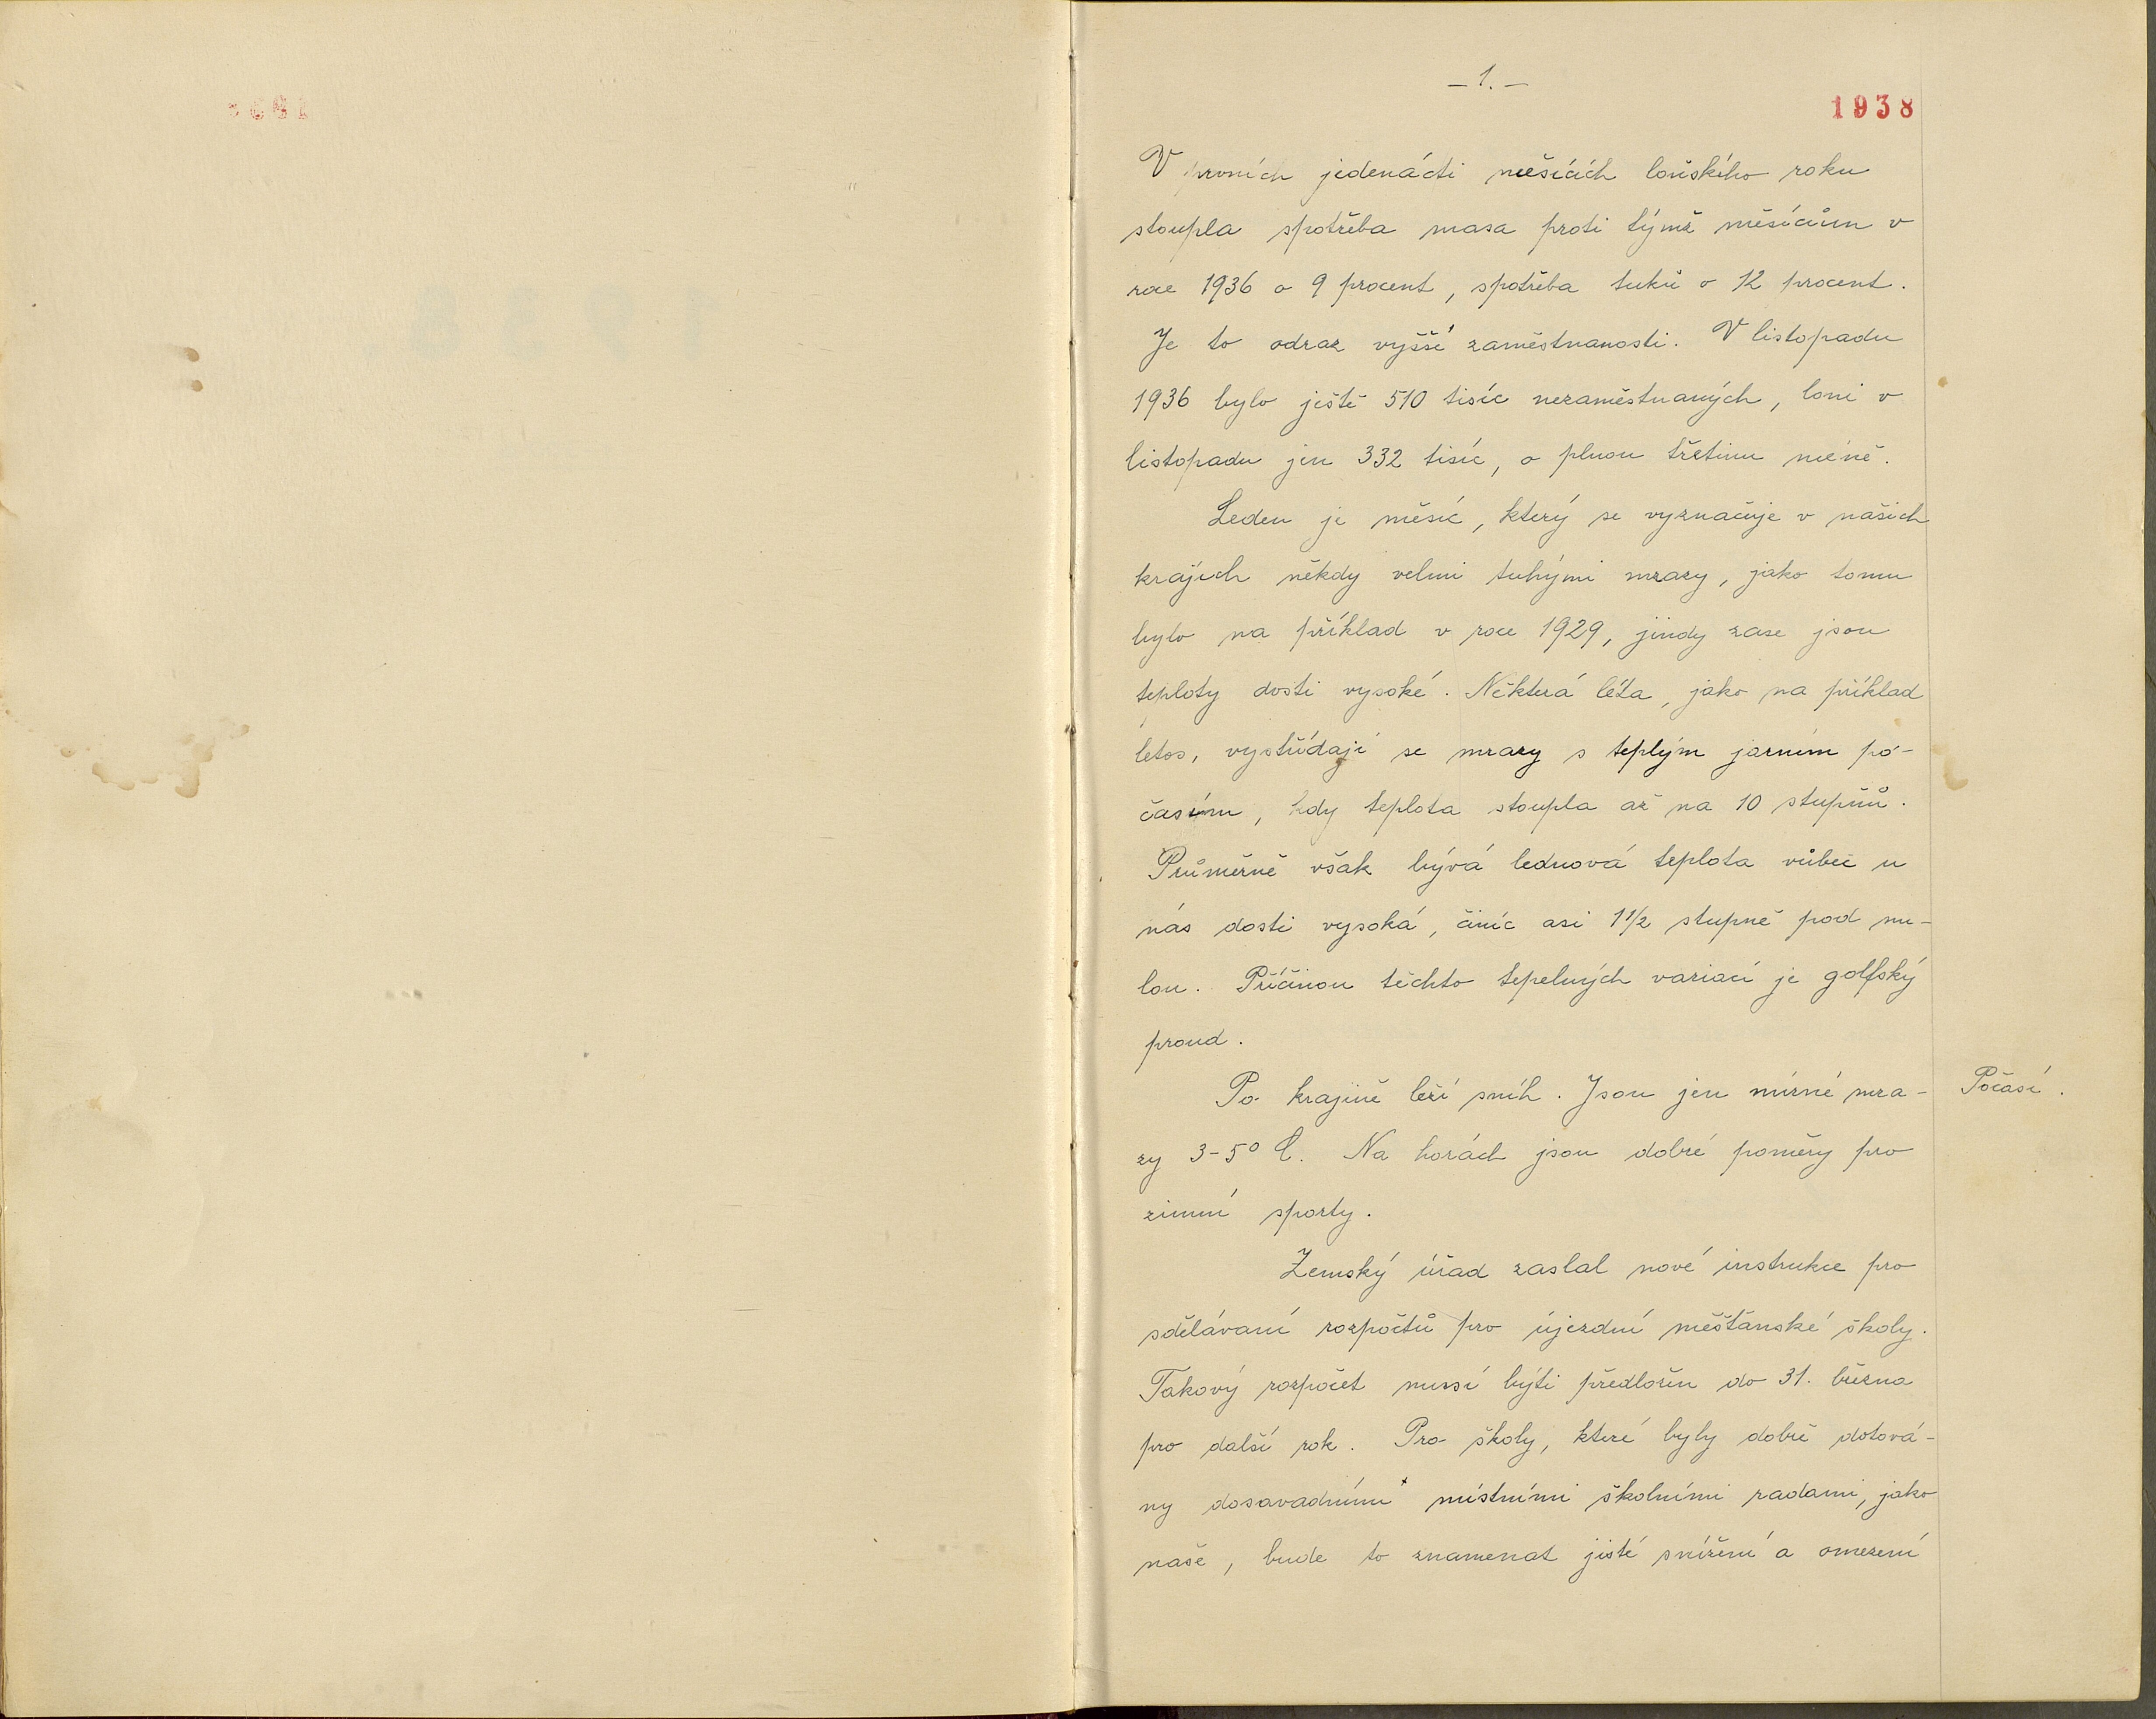 – 1. –
1938
V prvních jedenácti měsících loňského roku
stoupla spotřeba masa proti týmž měsícům v
roce 1936 o 9 procent, spotřeba tuků o 12 procent.
Je to odraz vyšší zaměstnanosti. V listopadu
1936 bylo ještě 510 tisíc nezaměstnaných, loni v
listopadu jen 332 tisíc, o plnou třetinu méně.
Leden je měsíc, který se vyznačuje v našich
krajích někdy velmi tuhými mrazy, jako tomu
bylo na příklad v roce 1929, jindy zase jsou
teploty dosti vysoké. Některá léta, jako na příklad
letos, vystřídají se mrazy s teplým jarním po-
časím, kdy teplota stoupla až na 10 stupňů.
Průměrně však bývá lednová teplota vůbec u
nás dosti vysoká, činíc asi 1 1/2 stupně pod nu-
lou. Příčinou těchto tepelných variací je golfský
proud.
Po krajině leží sníh. Jsou jen mírné mra-
Počasí.
zy 3-5° C. Na horách jsou dobré poměry pro
zimní sporty.
Zemský úřad zaslal nové instrukce pro
sdělávaní rozpočtů pro újezdní měšťanské školy.
Takový rozpočet mussí býti předložen do 31. března
pro další rok. Pro školy, které byly dobře dotová-
ny dosavadními místními školními radami, jako
naše, bude to znamenat jisté snížení a omezení